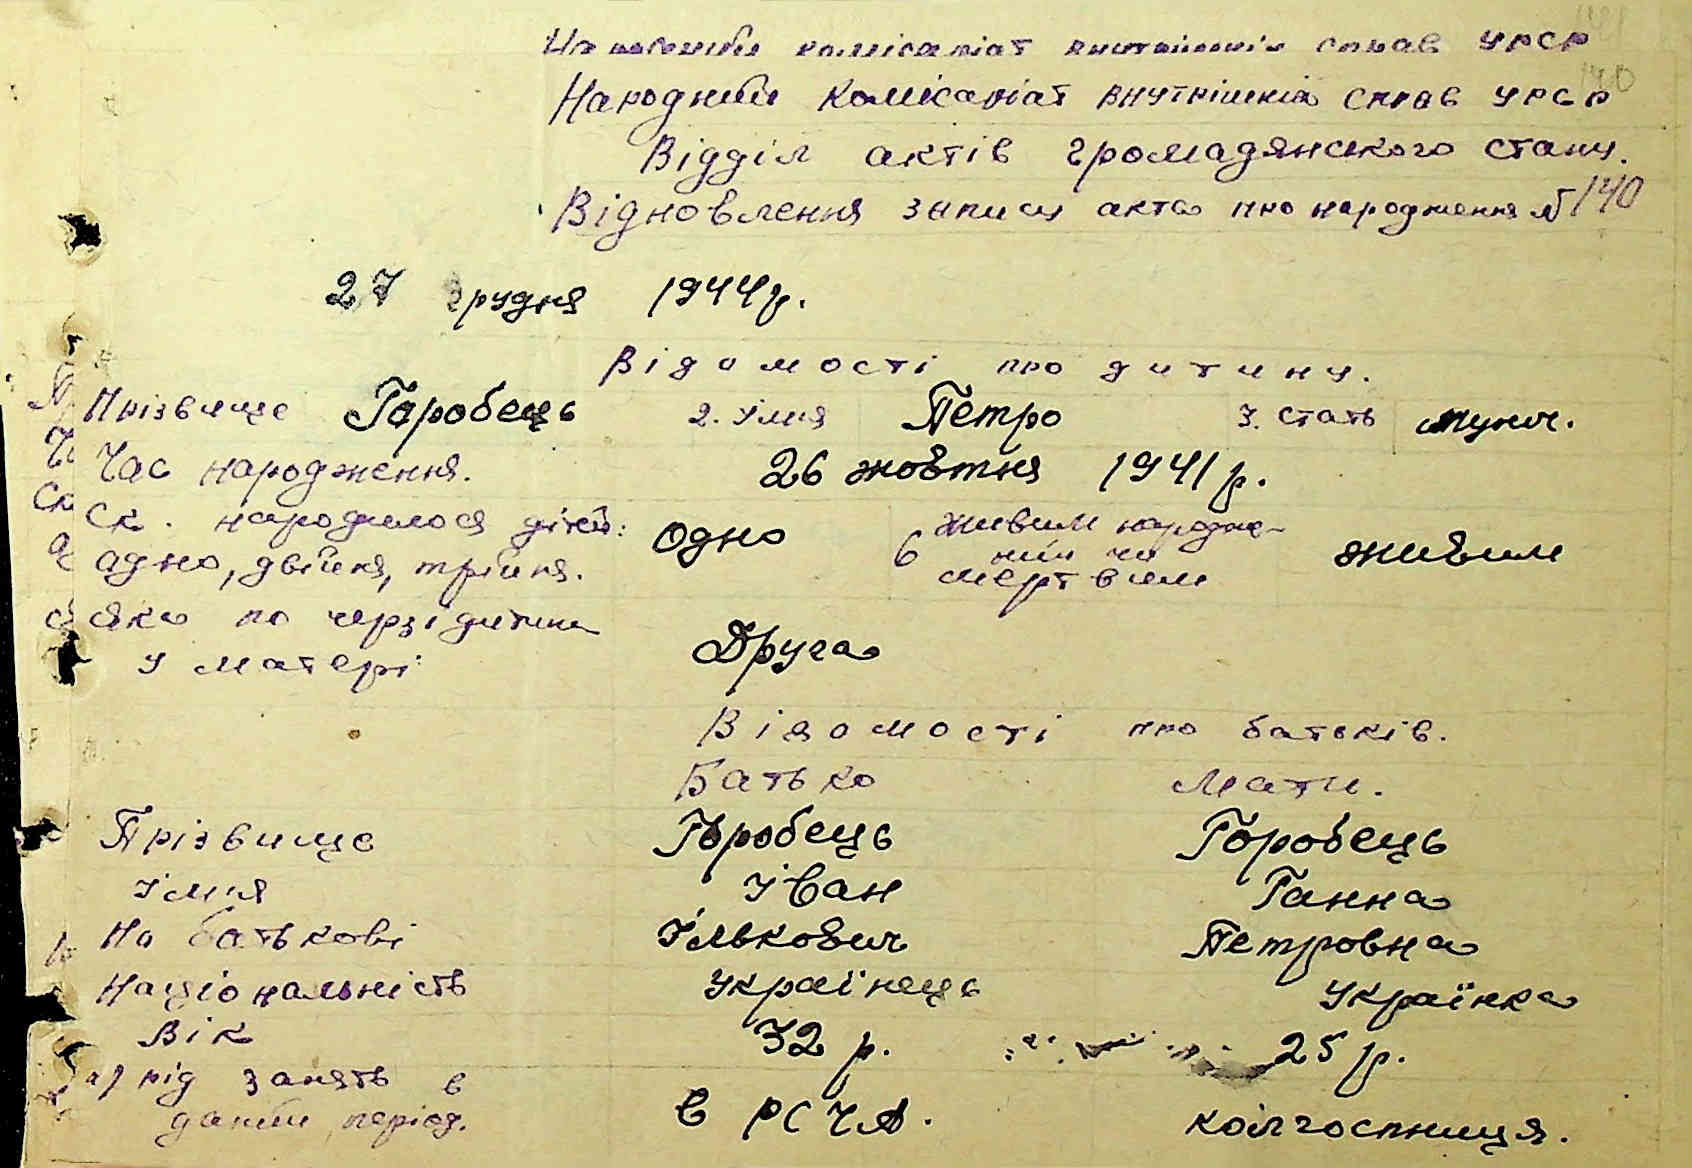 Народний комісаріат внутрішніх справ УРСР
Народний комісаріат внутрішніх справ УРСР
Відділ актів громадянського стану.
Відновлення запису акта про народження № 140
27 грудня 1944 р.
Відомості про дитину.
Прізвище Горобець 2. Ім'я Петро 3. стать мужч.
Час народження. 26 жовтня 1941 р.
Ск. народилося дітей: одно 6 живим народже-
одно, двійня, трійня. ний чи мертвим живим
яка по черзі дитина
у матері Друга
Відомості про батьків.
Батько Мати.
Прізвище Горобець Горобець
Ім'я Іван Ганна
На батькові Ількович Петровна
Національність Українець Українка
Вік 32 р. 25 р.
а) рід занять в
даний період. в РСЧА. колгоспниця.